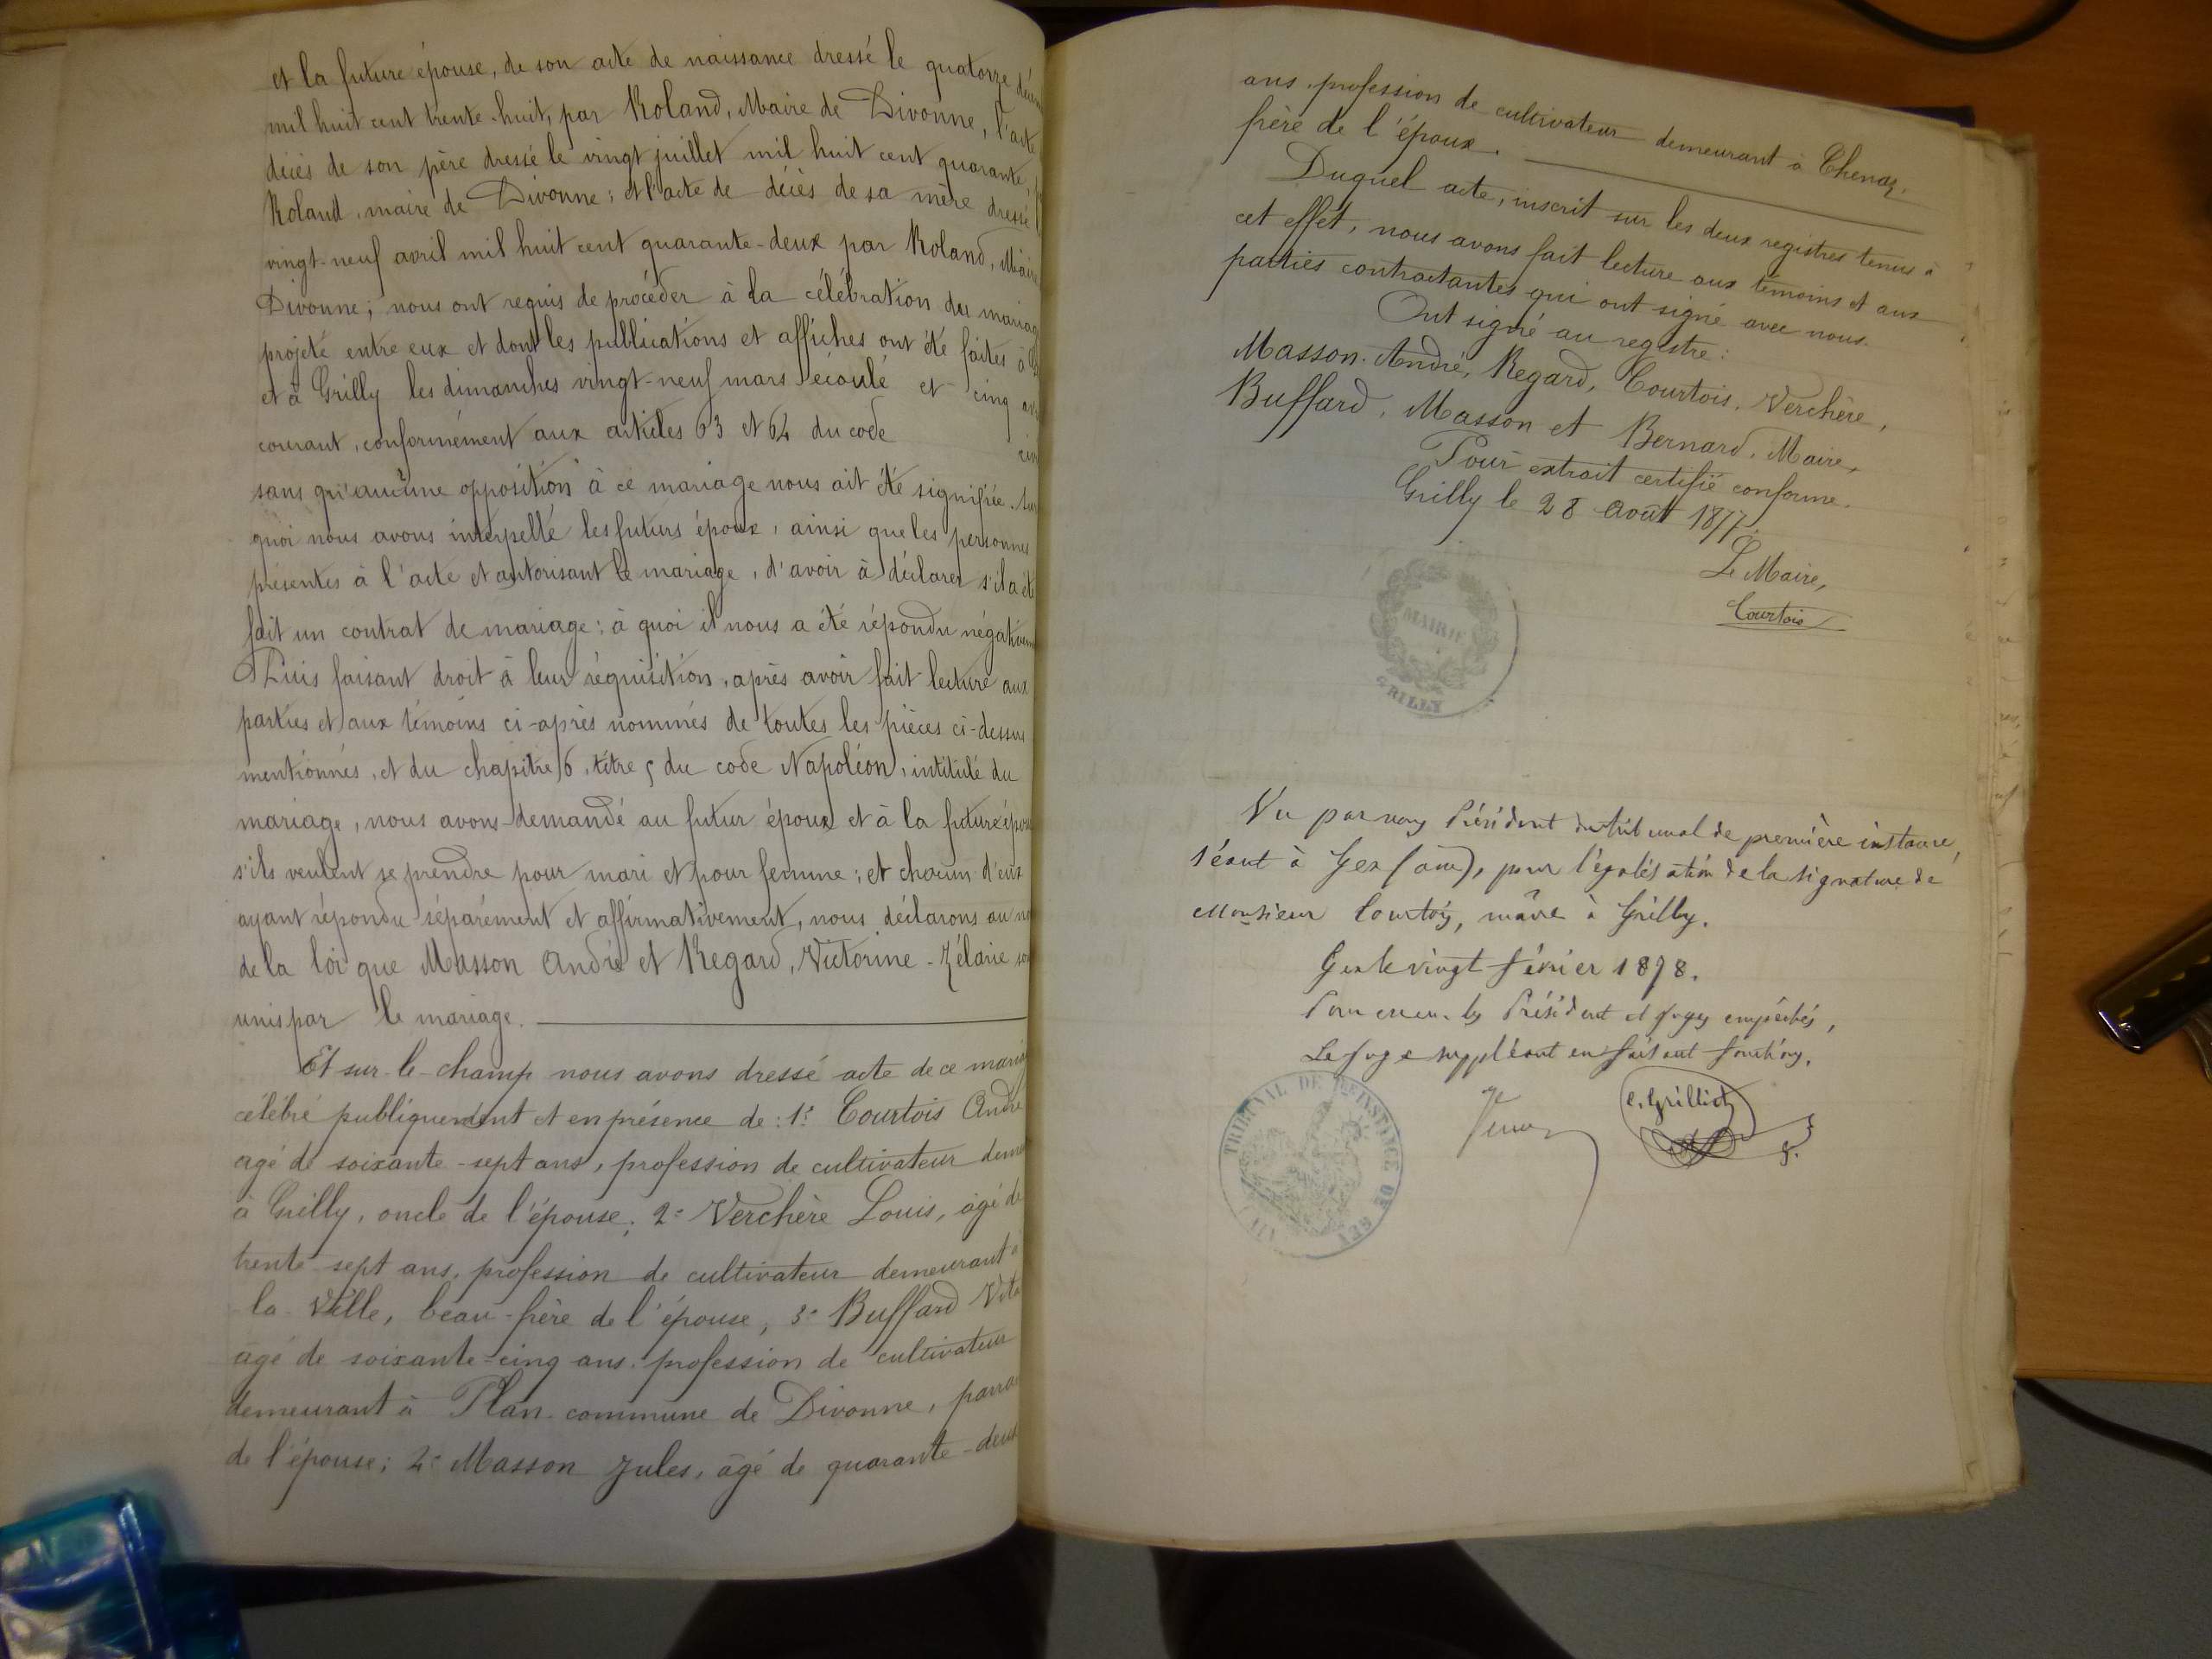 et la future épouse, de son acte de naissance dressé le quatorze
mil huit cent trente-huit, par Roland, Maire de Divonne, l'acte
décès de son père dressé le vingt juillet mil huit cent quarante,
Roland, maire de Divonne; et l'acte de décès de sa mère dressé
vingt-neuf avril mil huit cent quarante-deux par Roland, Maire
Divonne; nous ont requis de procéder à la célébration du mariage
projeté entre eux et dont les publications et affiches ont été faites à
et à Grilly les dimanches vingt-neuf mars écoulé et cinq
courant, conformément aux articles 63 et 64 du code
sans qu'aucune opposition à ce mariage nous ait été signifiée. Sur
quoi nous avons interpellé les futurs époux, ainsi que les personnes
présentes à l'acte et autorisant le mariage, d'avoir à déclarer s'il a été
fait un contrat de mariage; à quoi il nous a été répondu négativem
Puis faisant droit à leur réquisition, après avoir fait lecture aux
parties et aux témoins ci-après nommés de toutes les pièces ci-dessus
mentionnés, et du chapitre 6, titre 5 du code Napoléon, intitulé du
mariage, nous avons demandé au futur époux et à la future épou
s'ils veulent se prendre pour mari et pour femme; et chacun d'eux
ayant répondu séparément et affirmativement, nous déclarons au no
de la loi que Masson André et Regard, Victorine-Zélanie son
unis par le mariage.
Et sur-le-champ nous avons dressé acte de ce maria
célébré publiquement et en présence de: 1° Courtois André
agé de soixante-sept ans, profession de cultivateur deme
à Grilly, oncle de l'épouse; 2° Verchère Louis, âgé de
trente-sept ans, profession de cultivateur demeurant à
la Ville, beau-frère de l'épouse; 3° Buffard
agé de soixante-cinq ans, profession de cultivateur
demeurant à Plan commune de Divonne, parra
de l'épouse; 4° Masson Jules, âgé de quarante-deux
ans, profession de cultivateur demeurant à Chenaz,
frère de l'époux.
Duquel acte, inscrit sur les deux registres tenus à
cet effet, nous avons fait lecture aux témoins et aux
parties contractantes qui ont signé avec nous.
Ont signé au registre:
Masson André, Regard, Courtois, Verchère,
Buffard, Masson et Bernard, Maire.
Pour extrait certifié conforme.
Grilly le 28 Août 1877.
Le Maire,
Courtois
MAIRIE
GRILLY
Vu par nous Président du tribunal de première instance,
séant à Gex (ain), pour légalisation de la signature de
Monsieur Courtois, maire à Grilly.
Gex le vingt février 1878.
Pour les Président et juges empêchés,
Le juge suppléant en faisant fonctions,
TRIBUNAL DE 1re INSTANCE DE GEX
C. Grilliet